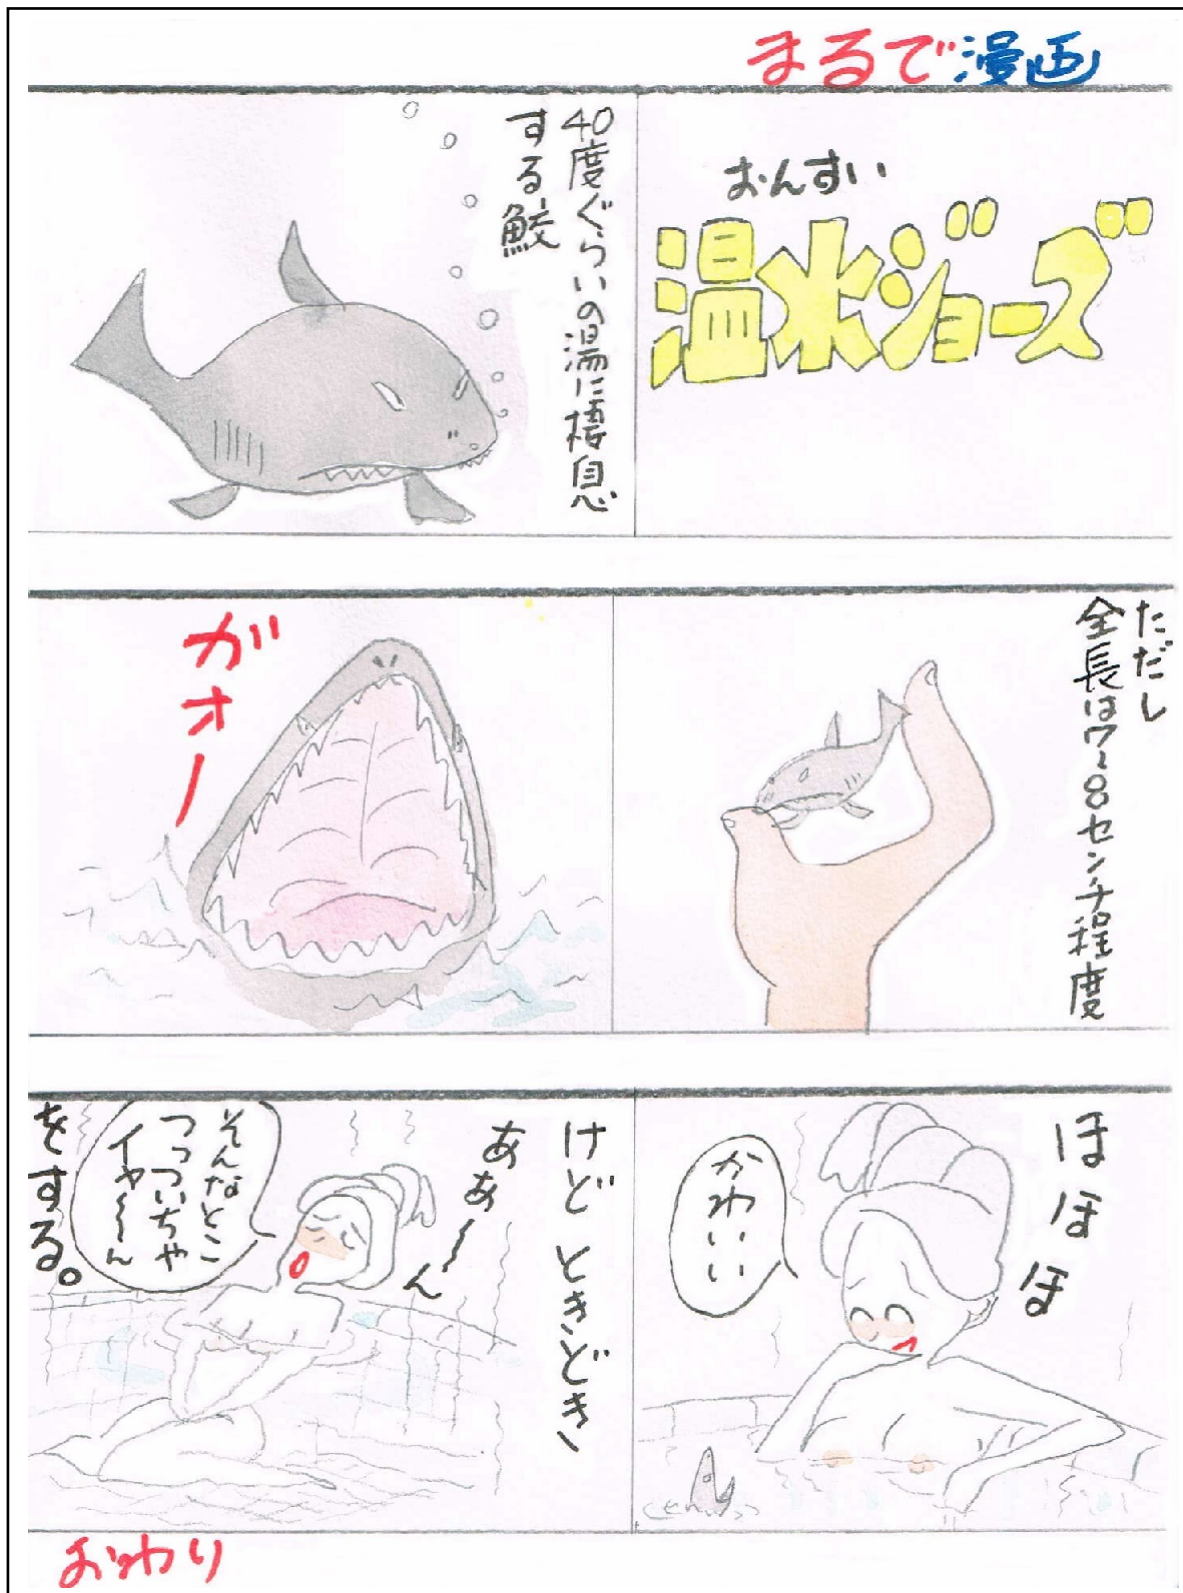 まるで漫画
おんすい
温水ジョーズ
40度ぐらいの湯に棲息
する鮫
ただし
全長は7~8センチ程度
ガオー
ほほほ
かわいい
けど ときどき
ああ〜ん
そんなとこ
つっついちゃ
イヤ〜〜ん
をする。
おわり